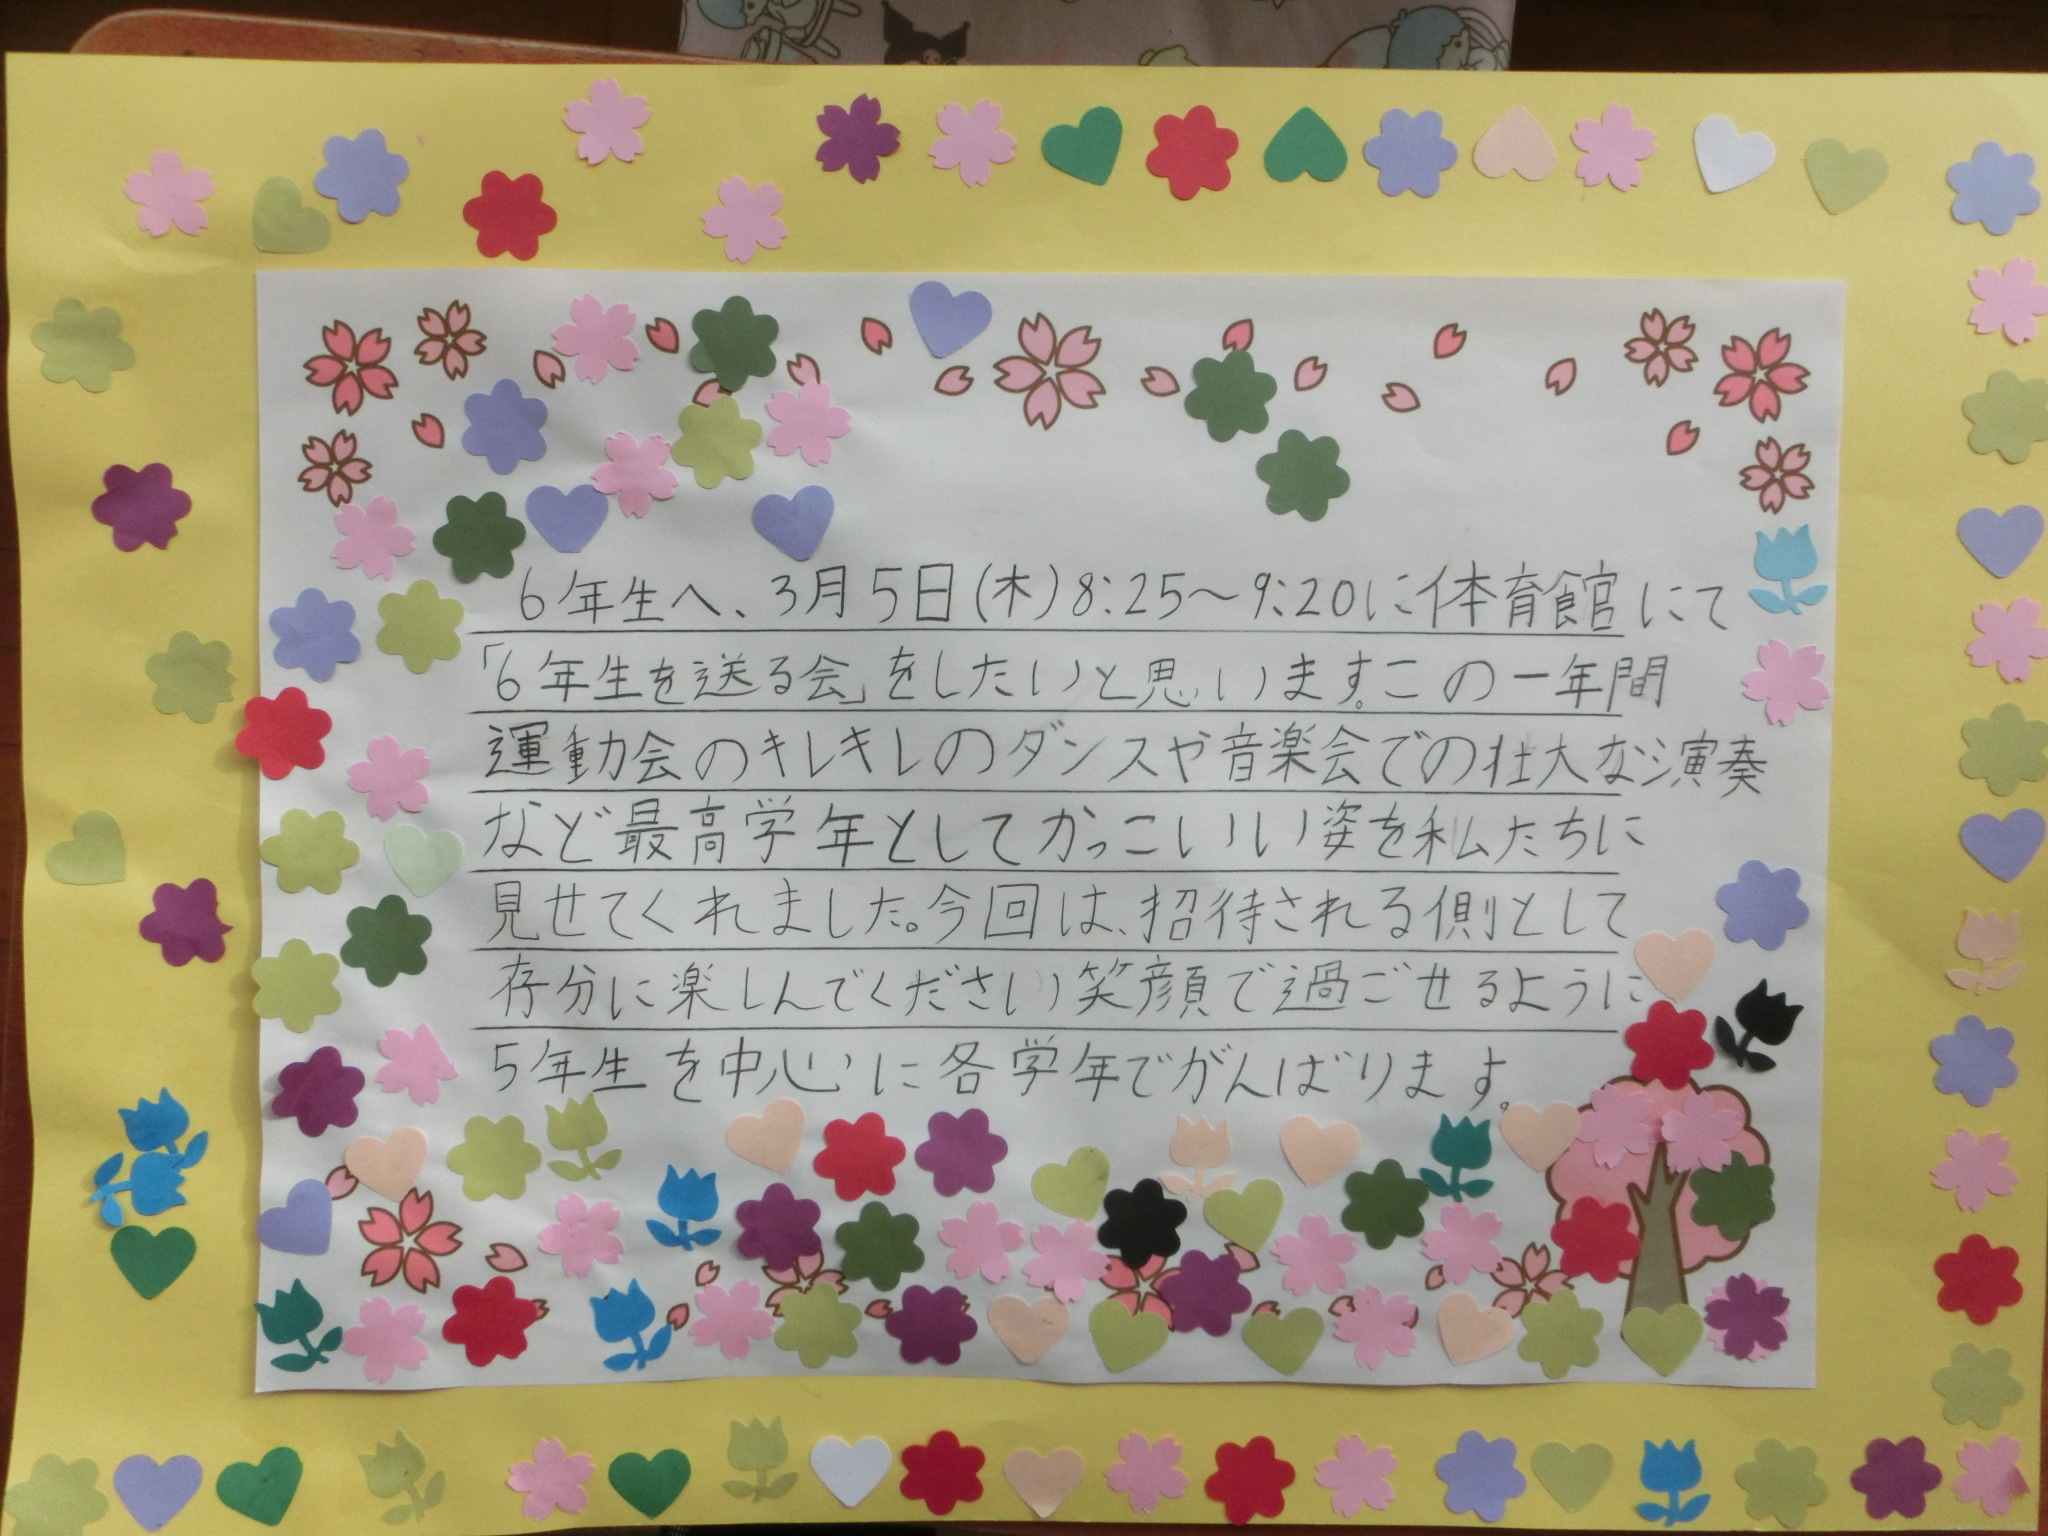 6年生へ、3月5日(木)8:25〜9:20に体育館にて
「6年生を送る会」をしたいと思います。この一年間
運動会のキレキレのダンスや音楽会での壮大な演奏
など最高学年としてかっこいい姿を私たちに
見せてくれました。今回は、招待される側として
存分に楽しんでください笑顔で過ごせるように
5年生を中心に各学年でがんばります。